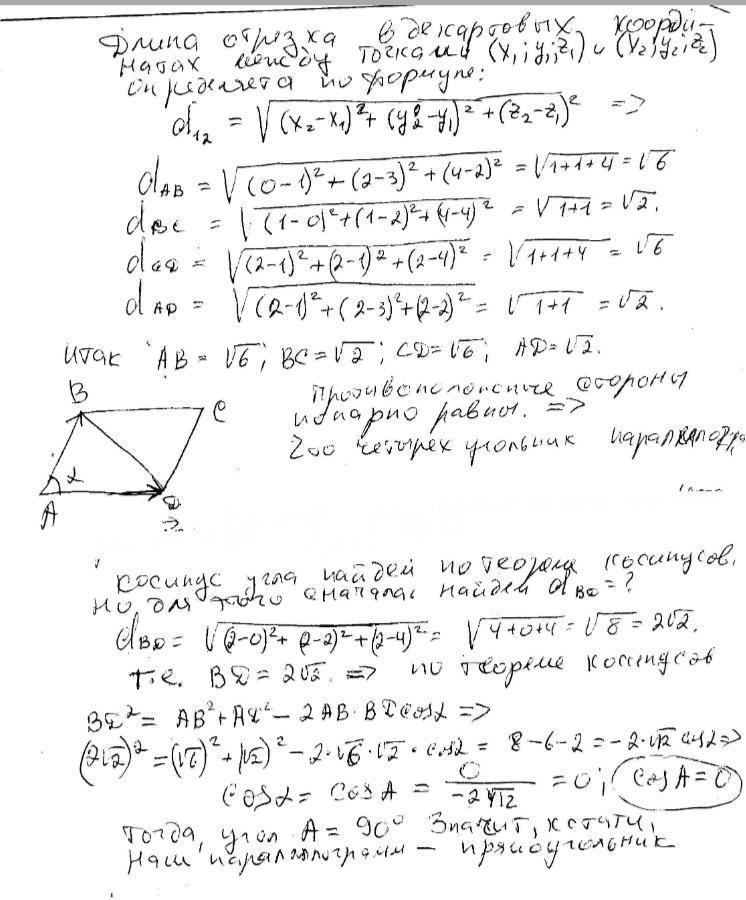 Длина отрезка в декартовых коорди-
натах между точками (x₁; y₁; z₁) и (x₂; y₂; z₂)
определяется по формуле:
d₁₂ = √((x₂-x₁)² + (y₂-y₁)² + (z₂-z₁)²) =>
d_AB = √((0-1)² + (2-3)² + (4-2)²) = √(1+1+4) = √6
d_BC = √((1-0)² + (1-2)² + (4-4)²) = √(1+1) = √2.
d_CD = √((2-1)² + (2-1)² + (2-4)²) = √(1+1+4) = √6
d_AD = √((2-1)² + (2-3)² + (2-2)²) = √(1+1) = √2.
Итак AB = √6; BC = √2; CD = √6; AD = √2.
B
C
Противоположные стороны
попарно равны. =>
Это четырехугольник
α
A
D
Косинус угла найдем по теореме косинусов.
Но, для этого сначала найдем d_BD = ?
d_BD = √((2-0)² + (2-2)² + (2-4)²) = √(4+0+4) = √8 = 2√2.
Т.е. BD = 2√2. => по теореме косинусов
BD² = AB² + AD² - 2AB·BD cosα =>
(2√2)² = (√6)² + (√2)² - 2·√6·√2·cosα = 8-6-2 = -2·√12 cosα =>
cosα = cosA = 0/(-2√12) = 0; cosA = 0
Тогда, угол A = 90° Значит, кстати,
наш параллелограмм — прямоугольник